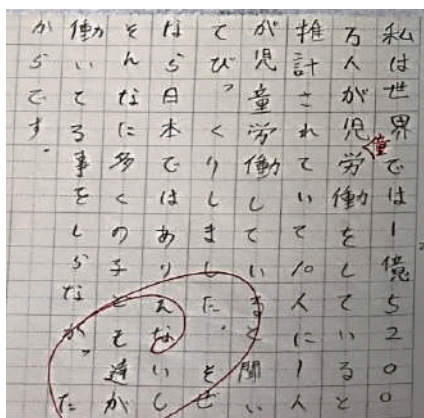 私は世界では1億5200
万人が児童労働をしていると
推計されていて10人に1人
が児童労働していると聞い
てびっくりしました。なぜ
なら日本ではありえないし
そんなに多くの子ども達が
働いてる事をしらなかった
からです。